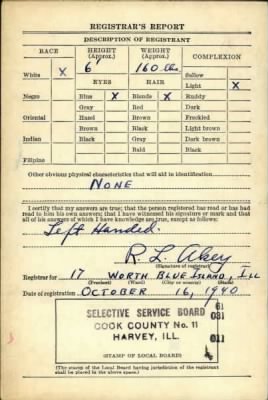 REGISTRAR'S REPORT
DESCRIPTION OF REGISTRANT
RACE HEIGHT (Approx.) WEIGHT (Approx.) COMPLEXION
White X 6' 160 lbs. Sallow
EYES HAIR Light X
Negro Blue X Blonde X Ruddy
Gray Red Dark
Oriental Hazel Brown Freckled
Brown Black Light brown
Indian Black Gray Dark brown
Bald Black
Filipino
Other obvious physical characteristics that will aid in identification
NONE
I certify that my answers are true; that the person registered has read or has had
read to him his own answers; that I have witnessed his signature or mark and that
all of his answers of which I have knowledge are true, except as follows:
Left Handed.
R. L. Akey
(Signature of registrar)
Registrar for 17 WORTH BLUE ISLAND, ILL
(Precinct) (Ward) (City or county) (State)
Date of registration OCTOBER 16, 1940
61
SELECTIVE SERVICE BOARD 031
COOK COUNTY No. 11
HARVEY, ILL. 011
(STAMP OF LOCAL BOARD)
(The stamp of the Local Board having jurisdiction of the registrant
shall be placed in the above space.)